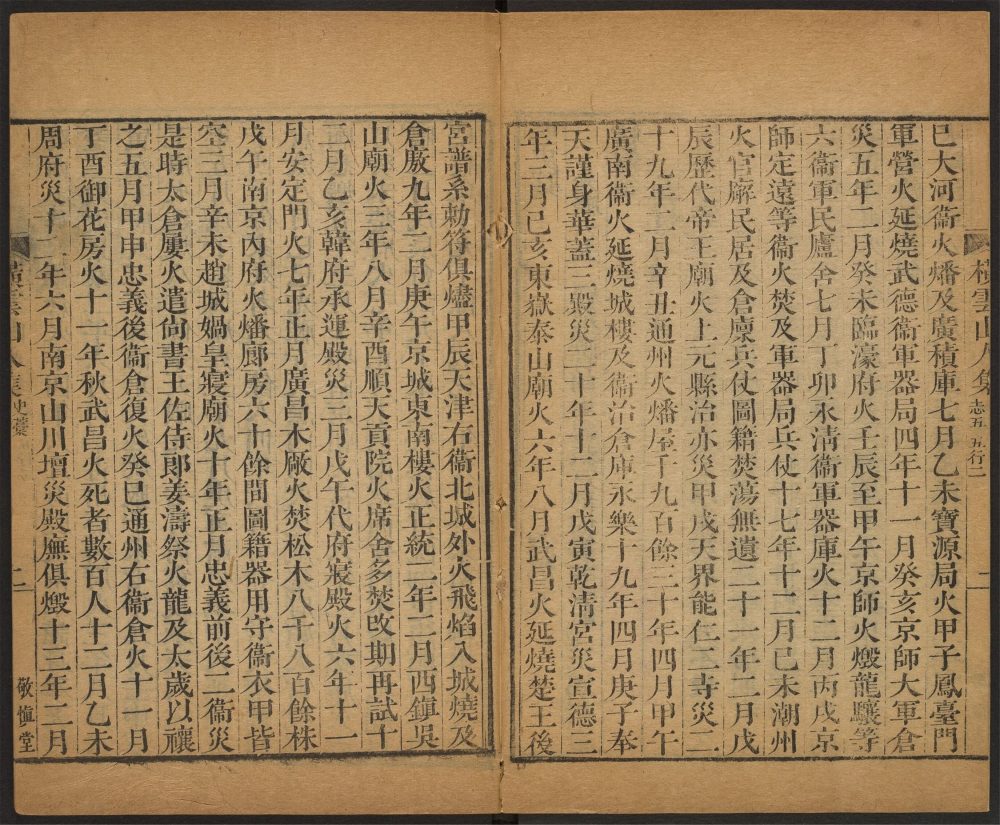 橫雲山人集
志五 五行二
二
巳大河衞火燔及廣積庫七月乙未寶源局火甲子鳳臺門
軍營火延燒武德衞軍器局四年十一月癸亥京師大軍倉
災五年二月癸未臨濠府火壬辰至甲午京師火燬龍驤等
六衞軍民廬舍七月丁卯永清衞軍器庫火十二月丙戌京
師定遠等衞火焚及軍器局兵仗十七年十二月己未潮州
火官廨民居及倉廩兵仗圖籍焚蕩無遺二十一年二月戊
辰歷代帝王廟火上元縣治亦災甲戌天界能仁二寺災二
十九年二月辛丑通州火燔屋千九百餘三十年四月甲午
廣南衞火延燒城樓及衞治倉庫永樂十九年四月庚子奉
天謹身華蓋三殿災二十年十二月戊寅乾清宮災宣德三
年三月己亥東嶽泰山廟火六年八月武昌火延燒楚王後
宮譜系勅符俱燼甲辰天津右衞北城外火飛焰入城燒及
倉厫九年二月庚午京城東南樓火正統二年二月西鎮吳
山廟火三年八月辛酉順天貢院火席舍多焚改期再試十
二月乙亥韓府承運殿災三月戊午代府寢殿火六年十一
月安定門火七年正月廣昌木廠火焚松木八千八百餘株
戊午南京內府火燔廊房六十餘間圖籍器用守衞衣甲皆
空三月辛未趙城媧皇寢廟火十年正月忠義前後二衞災
是時太倉屢火遣尙書王佐侍郎姜濤祭火龍及太歲以禳
之五月甲申忠義後衞倉復火癸巳通州右衞倉火十一月
丁酉御花房火十一年秋武昌火死者數百人十二月乙未
周府災十二年六月南京山川壇災殿廡俱燬十三年二月
橫雲山人集
史藁
二
敬愼堂